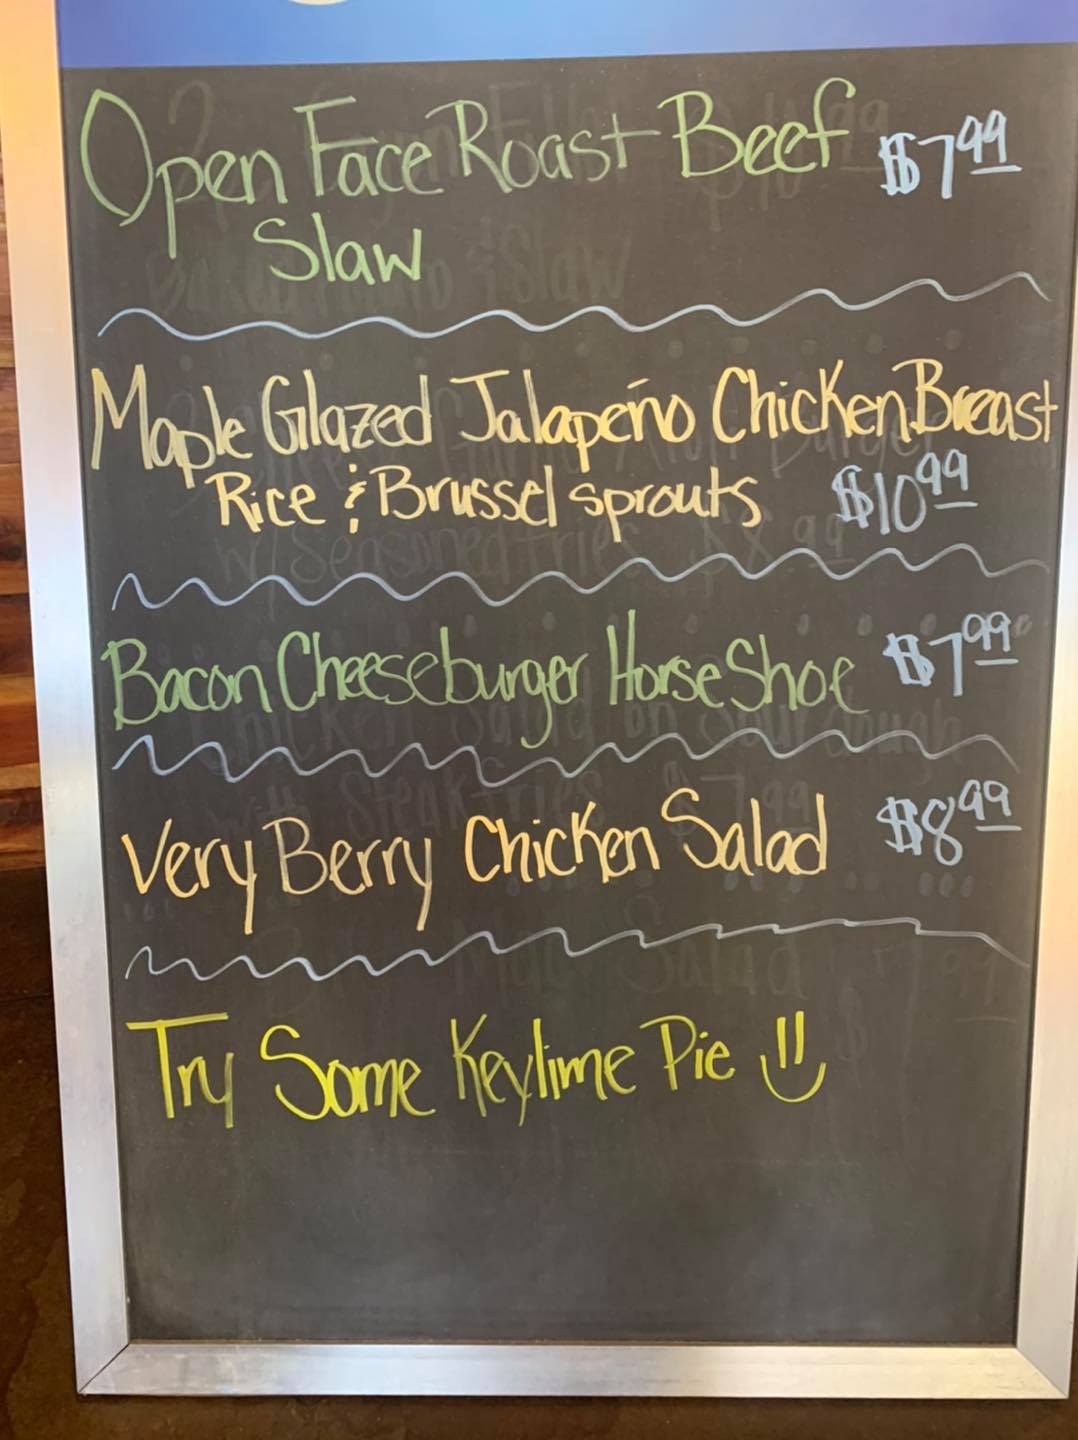 Open Face Roast Beef $7.99
Slaw
Maple Glazed Jalapeño Chicken Breast
Rice & Brussel sprouts $10.99
Bacon Cheeseburger Horse Shoe $7.99
Very Berry Chicken Salad $8.99
Try Some Keylime Pie